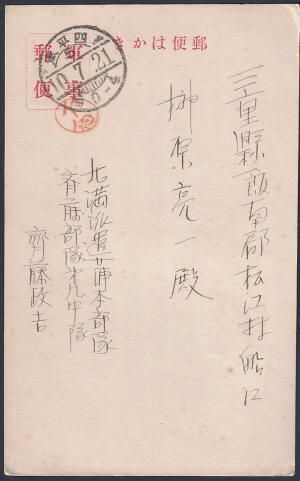 郵便はかき
軍事
郵便
四平
10.7.21
三重縣飯南郡松江村船江
榊原亮一殿
北満派遣
本部隊
斉藤部隊第九中隊
齊藤政吉